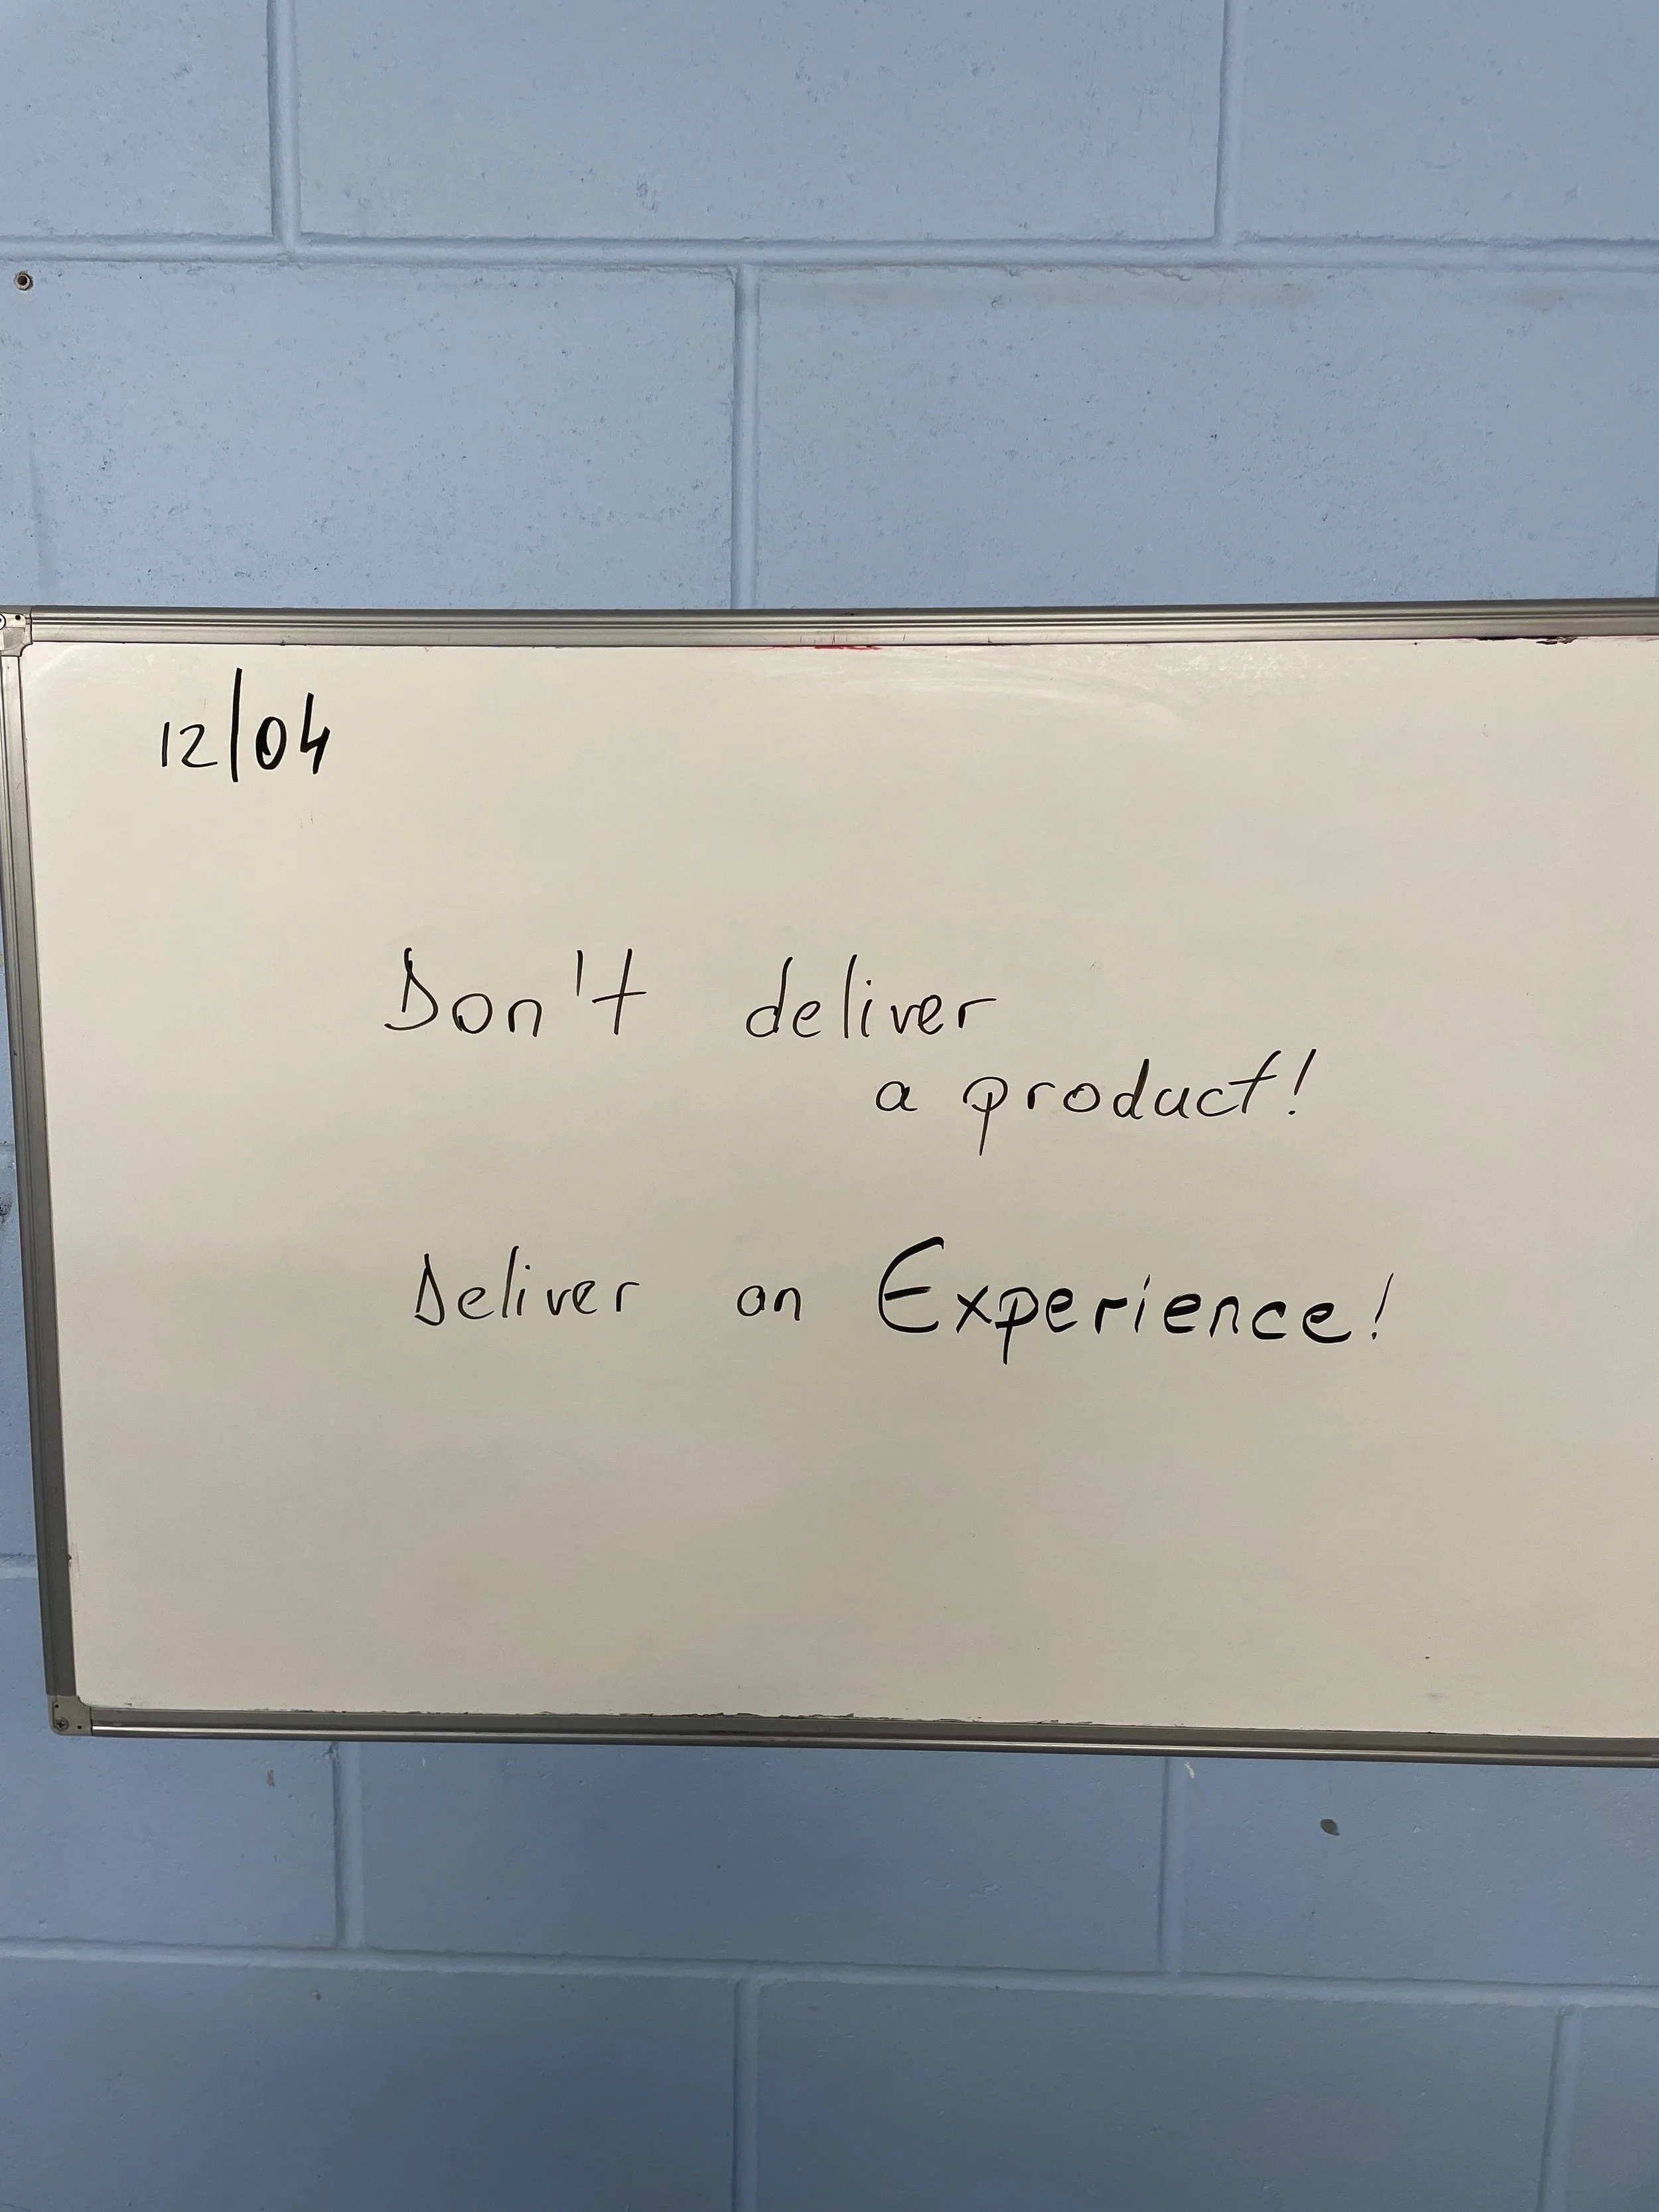 12/04
Don't deliver
a product!
Deliver an Experience!